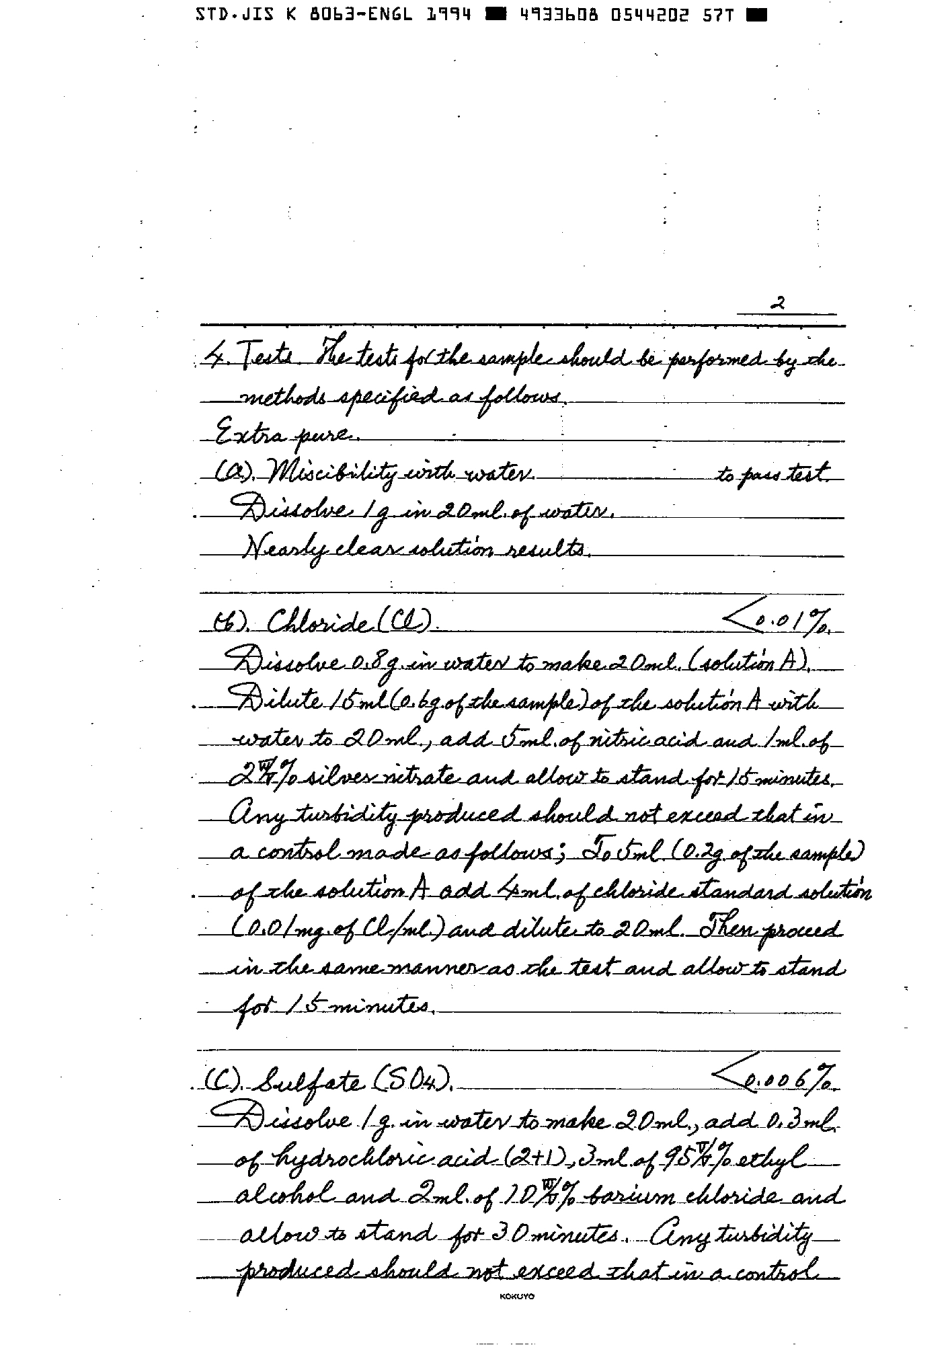 STD.JIS K 8063-ENGL 1994 ■ 4933608 0544202 57T ■
2
4. Tests The tests for the sample should be performed by the
methods specified as follows.
Extra pure.
(a). Miscibility with water. to pass test.
Dissolve 1g in 20ml. of water.
Nearly clear solution results.
(b). Chloride (Cl). <0.01%.
Dissolve 0.8g. in water to make 20ml. (solution A).
Dilute 15ml (0.6g of the sample) of the solution A with
water to 20ml., add 5ml. of nitric acid and 1ml. of
2 W/V% silver nitrate and allow to stand for 15 minutes.
Any turbidity produced should not exceed that in
a control made as follows; To 5ml (0.2g of the sample)
of the solution A add 4ml. of chloride standard solution
(0.01mg. of Cl/ml.) and dilute to 20ml. Then proceed
in the same manner as the test and allow to stand
for 15 minutes.
(C). Sulfate (SO4). <0.006%.
Dissolve 1g. in water to make 20ml., add 0.3ml.
of hydrochloric acid (2+1), 3ml. of 95 V/V% ethyl
alcohol and 2ml. of 10 W/V% barium chloride and
allow to stand for 30 minutes. Any turbidity
produced should not exceed that in a control
KOKUYO